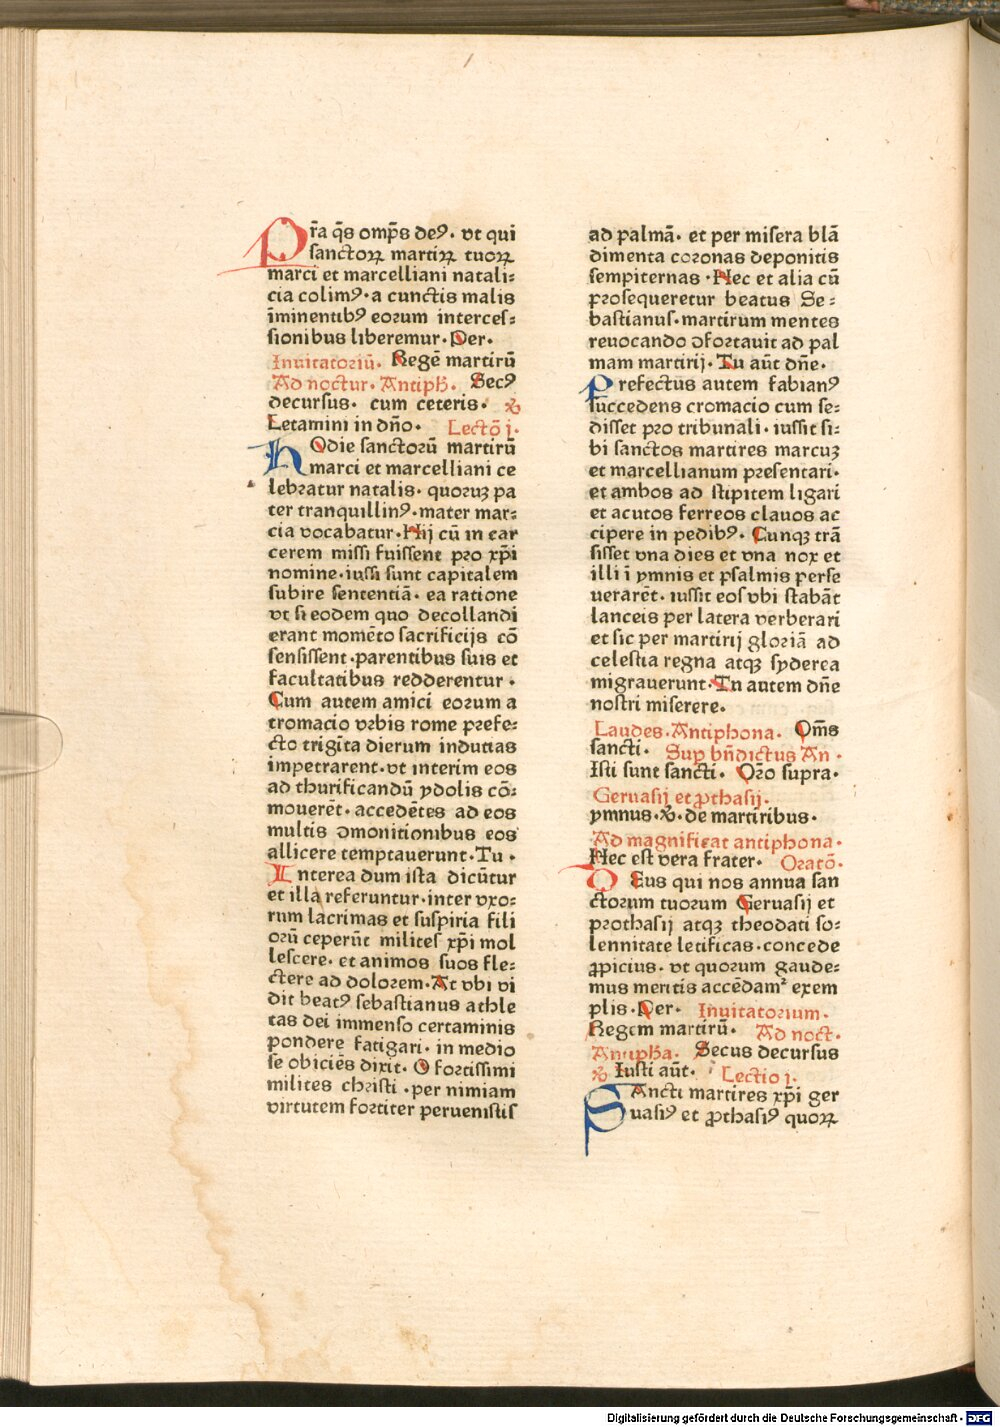 Pr̄a q̄s omp̄s deꝰ. vt qui
sanctoꝝ martiꝝ tuoꝝ
marci et marcelliani natali⸗
cia colimꝰ. a cunctis malis
īminentibꝰ eorum interces⸗
sionibus liberemur. Per.
Inuitatoriū. Regē martirū
Ad noctur. Antiph. Secꝰ
decursus. cum ceteris. ℟
Letamini in dn̄o. Lectō j.
HOdie sanctorū martirū
marci et marcelliani ce
lebratur natalis. quoruꝫ pa
ter tranquillinꝰ. mater mar⸗
cia vocabatur. Hij cū in car
cerem missi fuissent pro xp̄i
nomine. iussi sunt capitalem
subire sententiā. ea ratione
vt si eodem quo decollandi
erant momēto sacrificijs cō
sensissent. parentibus suis et
facultatibus redderentur.
Cum autem amici eorum a
cromacio vrbis rome prefe⸗
cto trigīta dierum indutias
impetrarent. vt interim eos
ad thurificandū ydolis cō⸗
mouerēt. accedētes ad eos
multis ɔmonitionibus eos
allicere temptauerunt. Tu.
Interea dum ista dicūtur
et illa referuntur. inter vxo⸗
rum lacrimas et suspiria fili
orū ceperūt milites xp̄i mol
lescere. et animos suos fle⸗
ctere ad dolorem. At vbi vi
dit beatꝰ sebastianus athle
tas dei immenso certaminis
pondere fatigari. in medio
se obiciēs dixit. O fortissimi
milites christi. per nimiam
virtutem fortiter peruenistis
ad palmā. et per misera blā
dimenta coronas deponitis
sempiternas. Hec et alia cū
prosequeretur beatus Se⸗
bastianus. martirum mentes
reuocando ɔfortauit ad pal
mam martirij. Tu aūt dn̄e.
Prefectus autem fabianꝰ
succedens cromacio cum se⸗
disset pro tribunali. iussit si⸗
bi sanctos martires marcuꝫ
et marcellianum presentari.
et ambos ad stipitem ligari
et acutos ferreos clauos ac
cipere in pedibꝰ. Cunqꝫ trā
sisset vna dies et vna nox et
illi ī ymnis et psalmis perse
uerarēt. iussit eos vbi stabāt
lanceis per latera verberari
et sic per martirij gloriā ad
celestia regna atqꝫ syderea
migrauerunt. Tu autem dn̄e
nostri miserere.
Laudes. Antiphona. Om̄s
sancti. Sup bn̄dictus An.
Isti sunt sancti. Oro supra.
Geruasij et ꝓthasij.
ymnus. ℣. de martiribus.
Ad magnificat antiphona.
Hec est vera frater. Oratō.
DEus qui nos annua san
ctorum tuorum Geruasij et
prothasij atqꝫ theodati so⸗
lennitate letificas. concede
ꝓpicius. vt quorum gaude⸗
mus meritis accēdamᷣ exem
plis. Per. Inuitatorium.
Regem martirū. Ad noct.
Antipha. Secus decursus
℟ Iusti aūt. Lectio j.
SAncti martires xp̄i ger
uasiꝰ et ꝓthasiꝰ quoꝝ
Digitalisierung gefördert durch die Deutsche Forschungsgemeinschaft - DFG